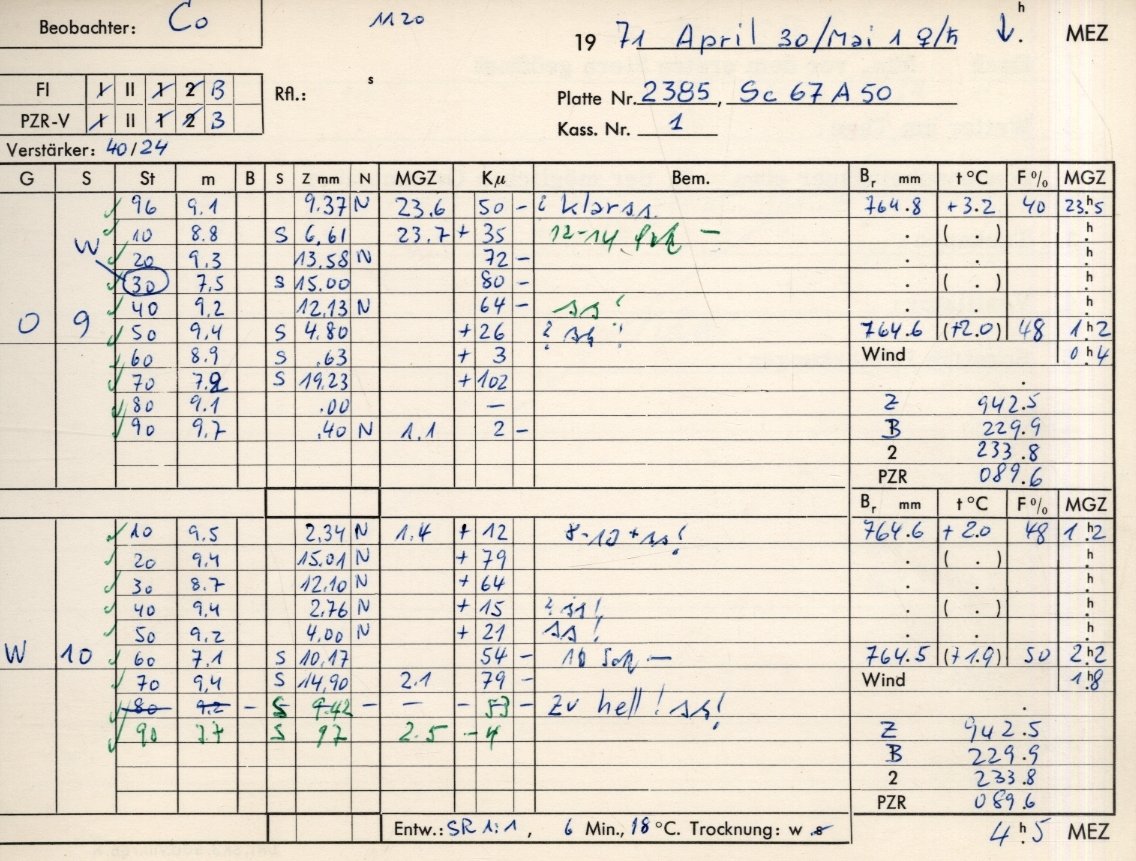 Beobachter: Co 1120 19 71 April 30/Mai 1 ♀/♄ ↓. h MEZ
FI I II 1 2 B Rfl.: s Platte Nr. 2385, Sc 67 A 50
PZR-V I II 1 2 B Kass. Nr. 1
Verstärker: 40/24
G S St m B S Z mm N MGZ Kμ Bem. Br mm t °C F % MGZ
96 9.1 9.37 N 23.6 50 - 764.8 +3.2 40 23.h5
10 8.8 S 6.61 23.7 + 35 12-14 - . ( . ) h
W 20 9.3 13.58 N 72 - . . h
30 7.5 S 15.00 80 - . ( . ) h
40 9.2 12.13 N 64 - ss! . . h
O 9 50 9.4 S 4.80 + 26 764.6 (+2.0) 48 1.h2
60 8.9 S .63 + 3 Wind 0.h4
70 7.2 S 19.23 + 102 .
80 9.1 .00 — Z 942.5
90 9.7 .40 N 1.1 2 - B 229.9
2 233.8
PZR 089.6
Br mm t °C F % MGZ
10 9.5 2.34 N 1.4 + 12 8-10 + ss! 764.6 +2.0 48 1.h2
20 9.4 15.01 N + 79 . ( . ) h
30 8.7 12.10 N + 64 . . h
40 9.4 2.76 N + 15 ss! . ( . ) h
50 9.2 4.00 N + 21 ss! . . h
W 10 60 7.1 S 10.17 54 - 10 — 764.5 (+1.9) 50 2.h2
70 9.4 S 14.90 2.1 79 - Wind 1.h8
80 9.2 - S 9.42 - — - 53 - zu hell! .
90 7.7 S 97 2.5 - 4 Z 942.5
B 229.9
2 233.8
PZR 089.6
Entw.: SR 1:1, 6 Min., 18 °C. Trocknung: w s 4.h5 MEZ